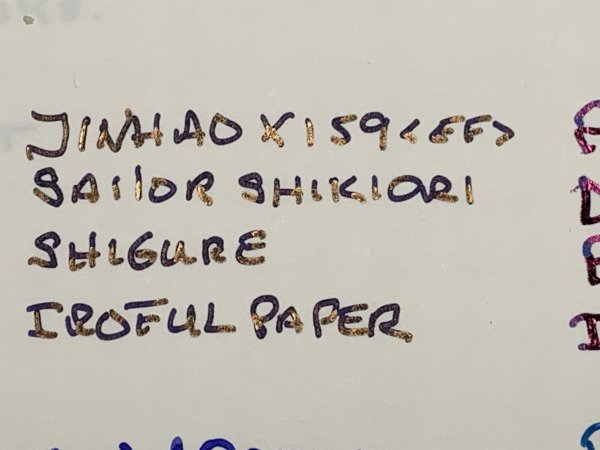 JINHAO X159 <EF>
SAILOR SHIKIORI
SHIGURE
IROFUL PAPER